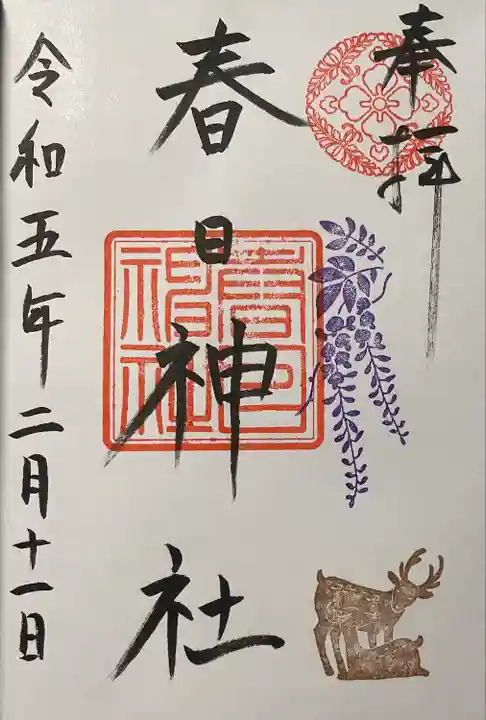 奉拝
春日神社
春日神社
令和五年二月十一日